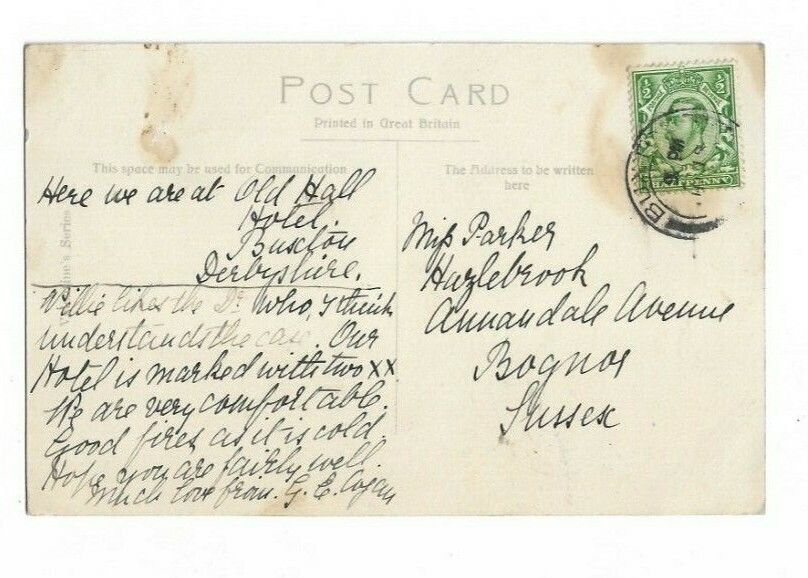 POST CARD
Printed in Great Britain
This space may be used for Communication
The Address to be written
here
Here we are at Old Hall
Hotel.
Buxton
Derbyshire.
Willie likes the Dr. who, I think
understands the case. Our
Hotel is marked with two xx
We are very comfortable.
Good fires as it is cold.
Hope you are fairly well.
Much love from. G. E. Cogan
Miss Parker
Hazlebrook
Annandale Avenue
Bognor
Sussex
½ ½
Series
PM